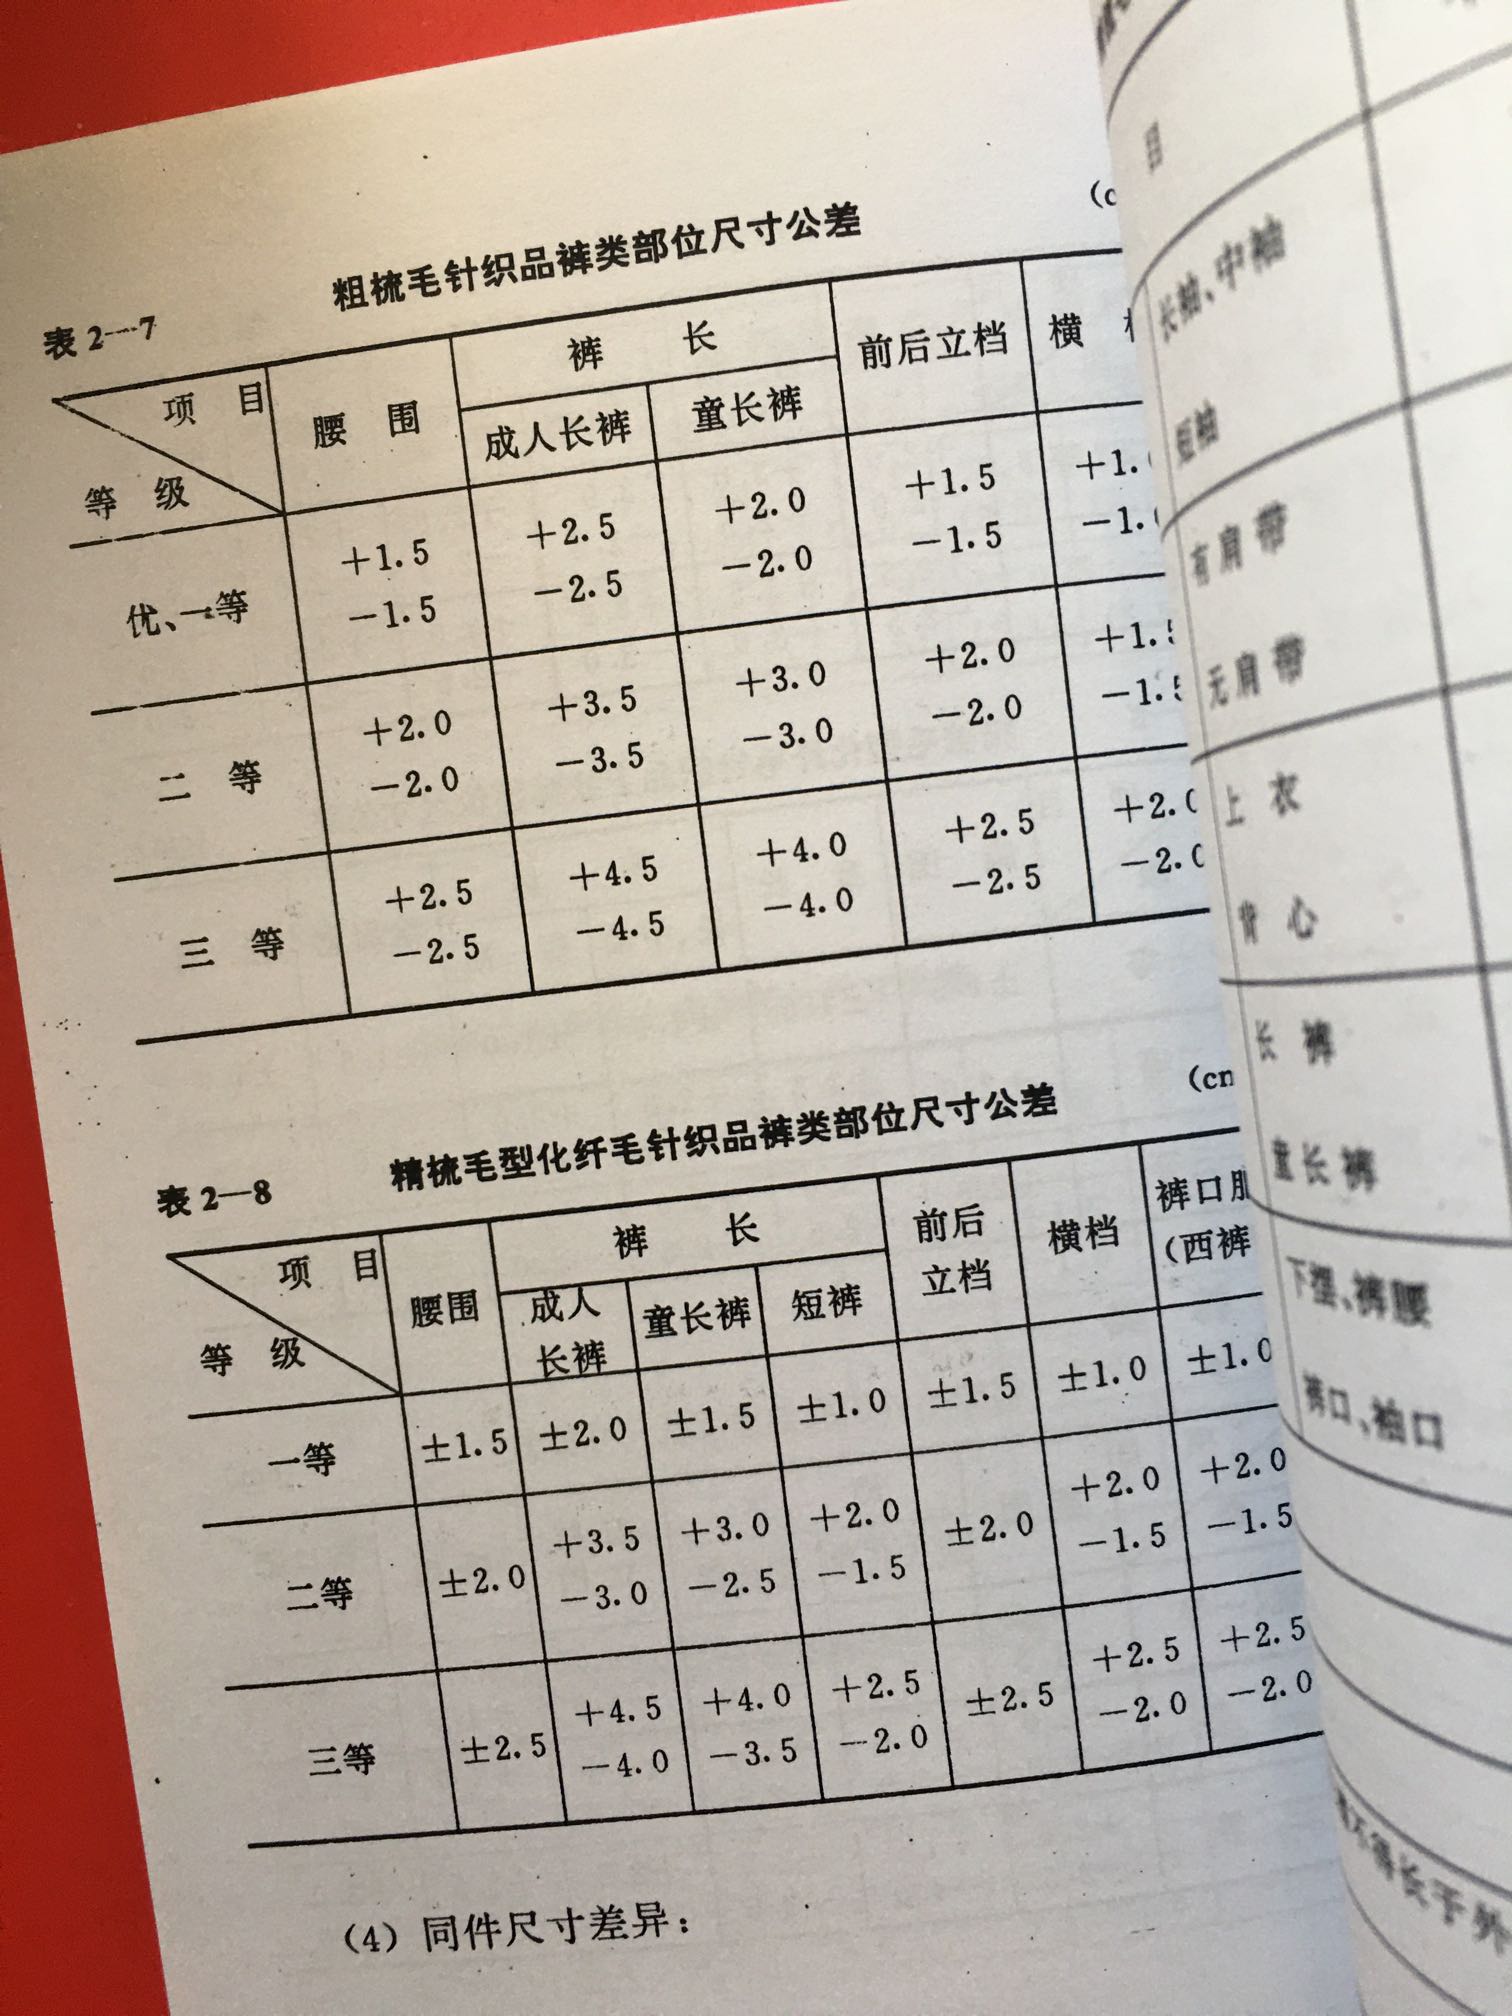 粗梳毛针织品裤类部位尺寸公差
表2—7
项 目 腰 围 裤 长 前后立档 横
等 级 成人长裤 童长裤
优、一等 +1.5 +2.5 +2.0 +1.5 +1.
-1.5 -2.5 -2.0 -1.5 -1.
二 等 +2.0 +3.5 +3.0 +2.0 +1.5
-2.0 -3.5 -3.0 -2.0 -1.5
三 等 +2.5 +4.5 +4.0 +2.5 +2.0
-2.5 -4.5 -4.0 -2.5 -2.0
精梳毛型化纤毛针织品裤类部位尺寸公差 (cm
表2—8
项 目 腰围 裤 长 前后立档 横档 裤口
等 级 成人长裤 童长裤 短裤 (西裤
一等 ±1.5 ±2.0 ±1.5 ±1.0 ±1.5 ±1.0 ±1.0
二等 ±2.0 +3.5 +3.0 +2.0 ±2.0 +2.0 +2.0
-3.0 -2.5 -1.5 -1.5 -1.5
三等 ±2.5 +4.5 +4.0 +2.5 ±2.5 +2.5 +2.5
-4.0 -3.5 -2.0 -2.0 -2.0
(4) 同件尺寸差异:
目
长袖、中袖
短袖
有肩带
无肩带
上 衣
背 心
长 裤
童长裤
下摆、裤腰
裤口、袖口
不得长于外